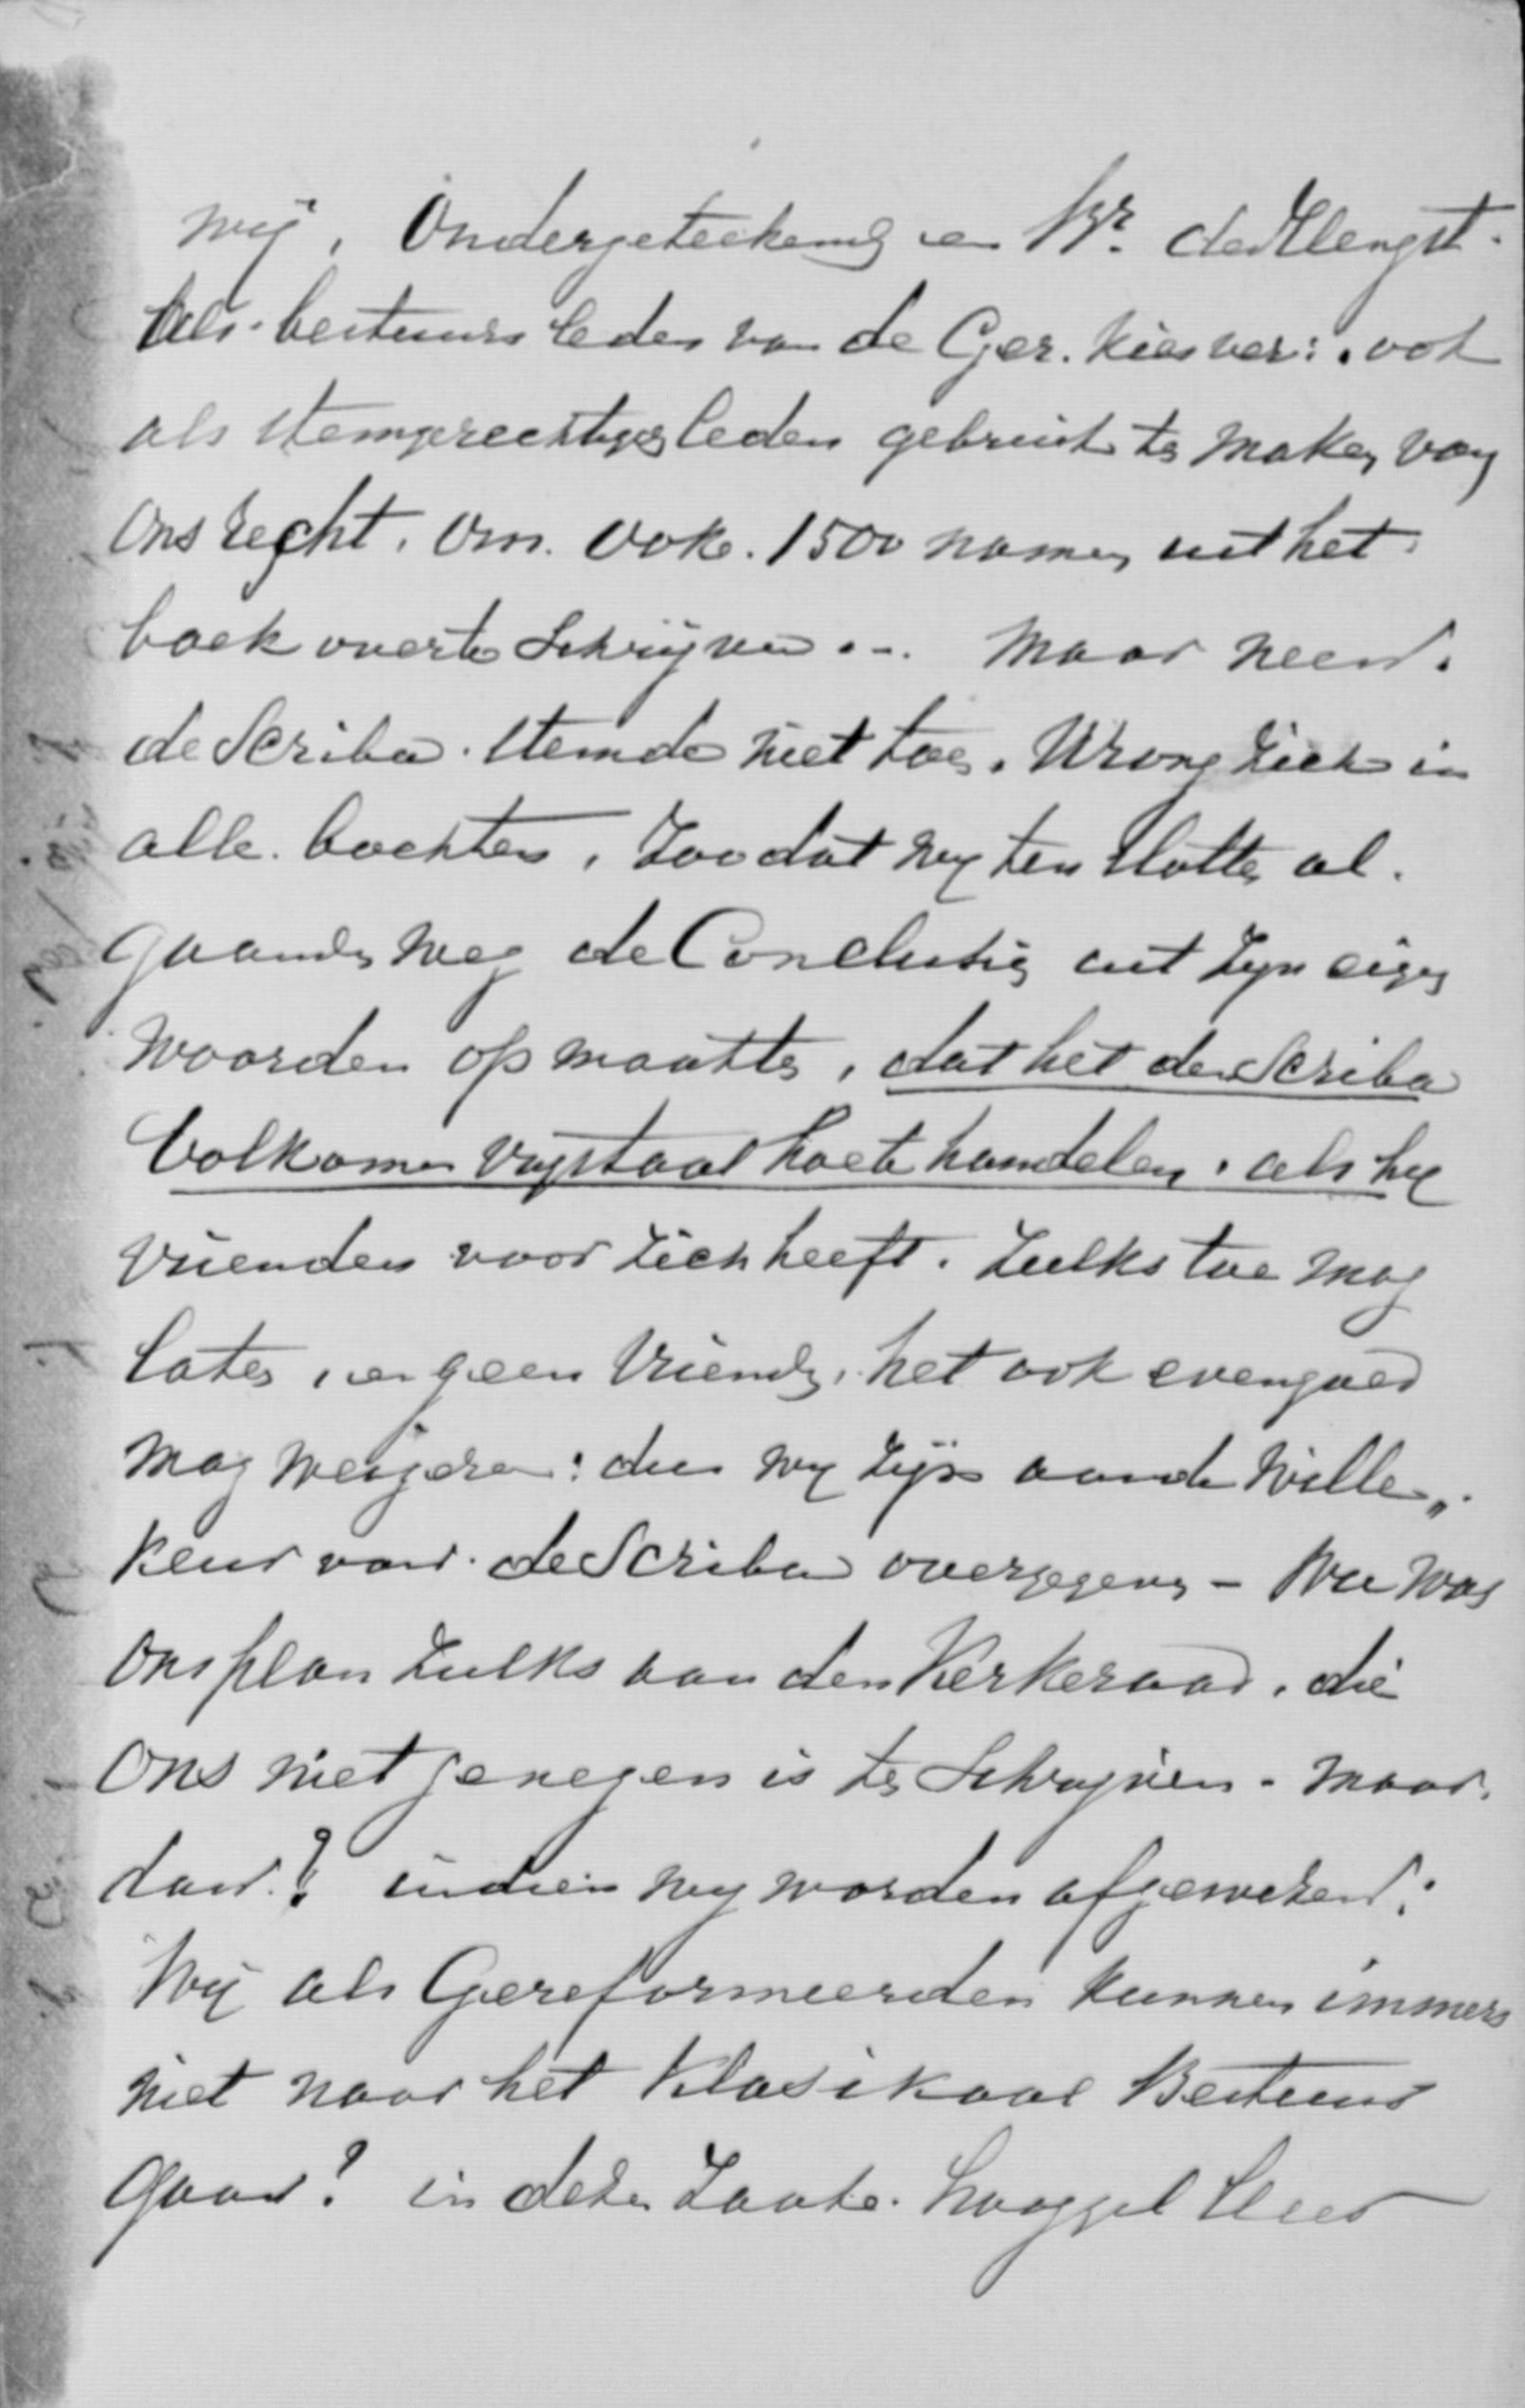 wij, Ondergeteekend en Br. den Hengst.
als bestuurs leden van de Ger. Kiesver: ook
als stemgerechtigde leden gebruik te maken van
ons recht. Om. ook. 1500 namen uit het
boek over te schrijven .-. maar neen.
de Scriba. stemde niet toe. Wrong zich in
alle. bochten, zoodat wij ten slotte al.
gaande weg de Conclusie uit zijn eigen
woorden opmaakte, dat het den Scriba
volkomen vrijstaat hoe te handelen. als hij
vrienden voor zich heeft. zulks toe mag
laten, en geen vrienden, het ook evengoed
mag weigeren: dus wij zijn aan de wille„
keur van. de Scriba overgegeven - Nu was
ons plan zulks aan den Kerkeraad, die
ons niet genegen is te schrijven. maar.
dan.? indien wij worden afgewezen:
Wij als Gereformeerden kunnen immers
niet naar het Klasikaal Bestuur
gaan? in deze zaak. Hooggel Heer